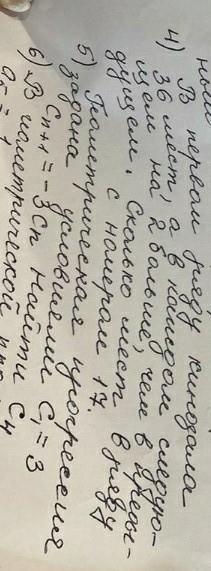 4) В первом ряду кинозала
36 мест, а в каждом следую-
щем на 2 больше, чем в преды-
дущем. Сколько мест в ряду
с номером 17.
5) Геометрическая прогрессия
задана условиями C₁ = 3
Cn+1 = -3Cn Найти C4
6) В геометрической